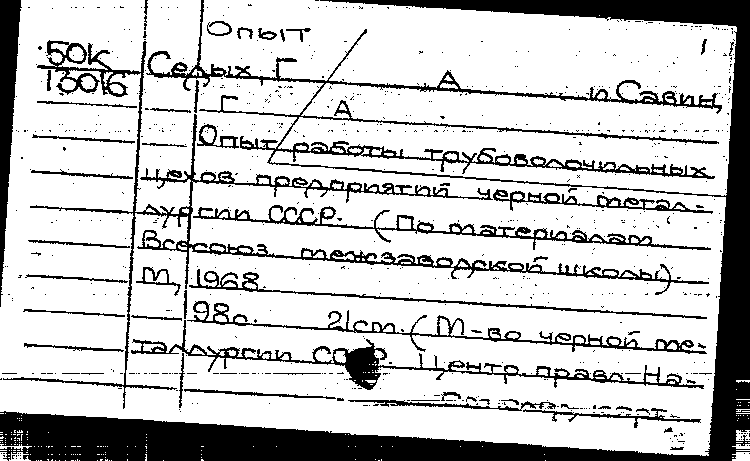 Опыт
1
50К
13016
Седых, Г А и Савин,
Г А
Опыт работы трубоволочильных
цехов предприятий черной метал-
лургии СССР. (По материалам
Всесоюз. межзаводской школы).
М, 1968.
98с. 21см. (М-во черной ме-
таллургии СССР. Центр. правл. На-
См. след. карт.